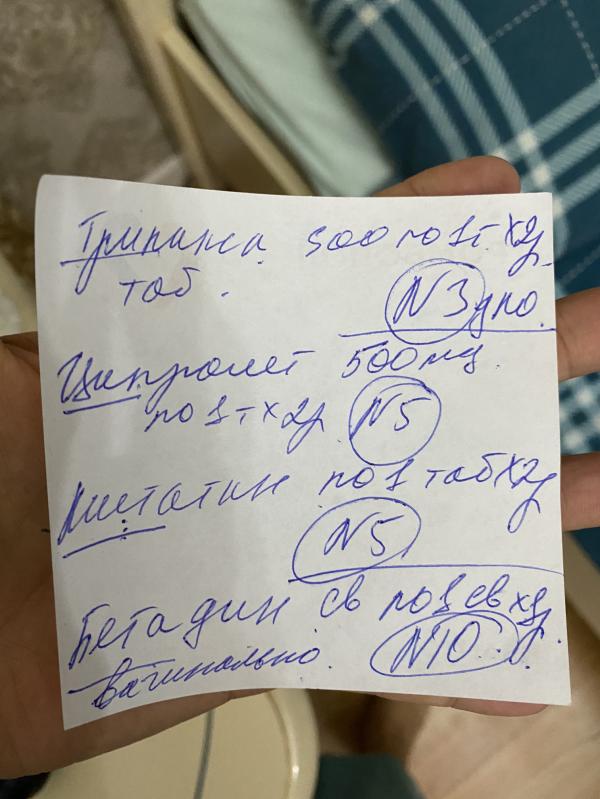 500 по 1т х 2р
таб. N3 уно.
Ципролет 500 мг.
по 1т х 2р N5
Нистатин по 1 таб х 2р
N5
Бетадин св по 1 св х р.
Вагинально. N10